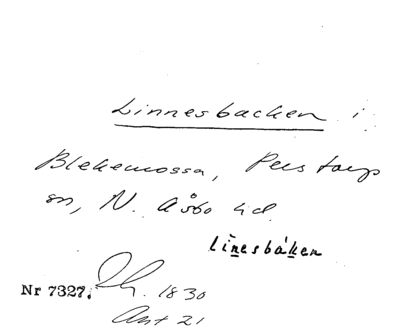 Linnesbacken i
Blekemossa, Perstorps
sn, N. Åsbo hd.
linesbáken
Nr 7327. 1830
Ant 21